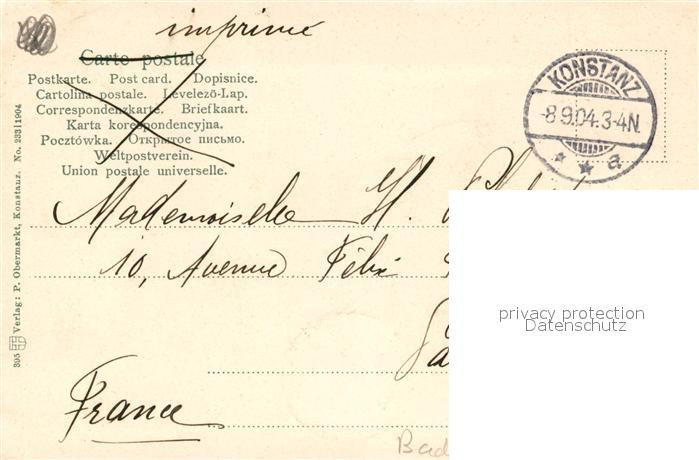 imprimé
Carte postale
Postkarte. Post card. Dopisnice.
Cartolina postale. Levelező-Lap.
Correspondenzkarte. Briefkaart.
Karta korespondencyjna.
Pocztówka. Открытое письмо.
Weltpostverein.
Union postale universelle.
KONSTANZ
-8.9.04.3-4N.
* * a
Mademoiselle H.
10, Avenue Félix
France
Bad
395 Verlag: P. Obermarkt, Konstanz. No. 233|1904
privacy protection
Datenschutz